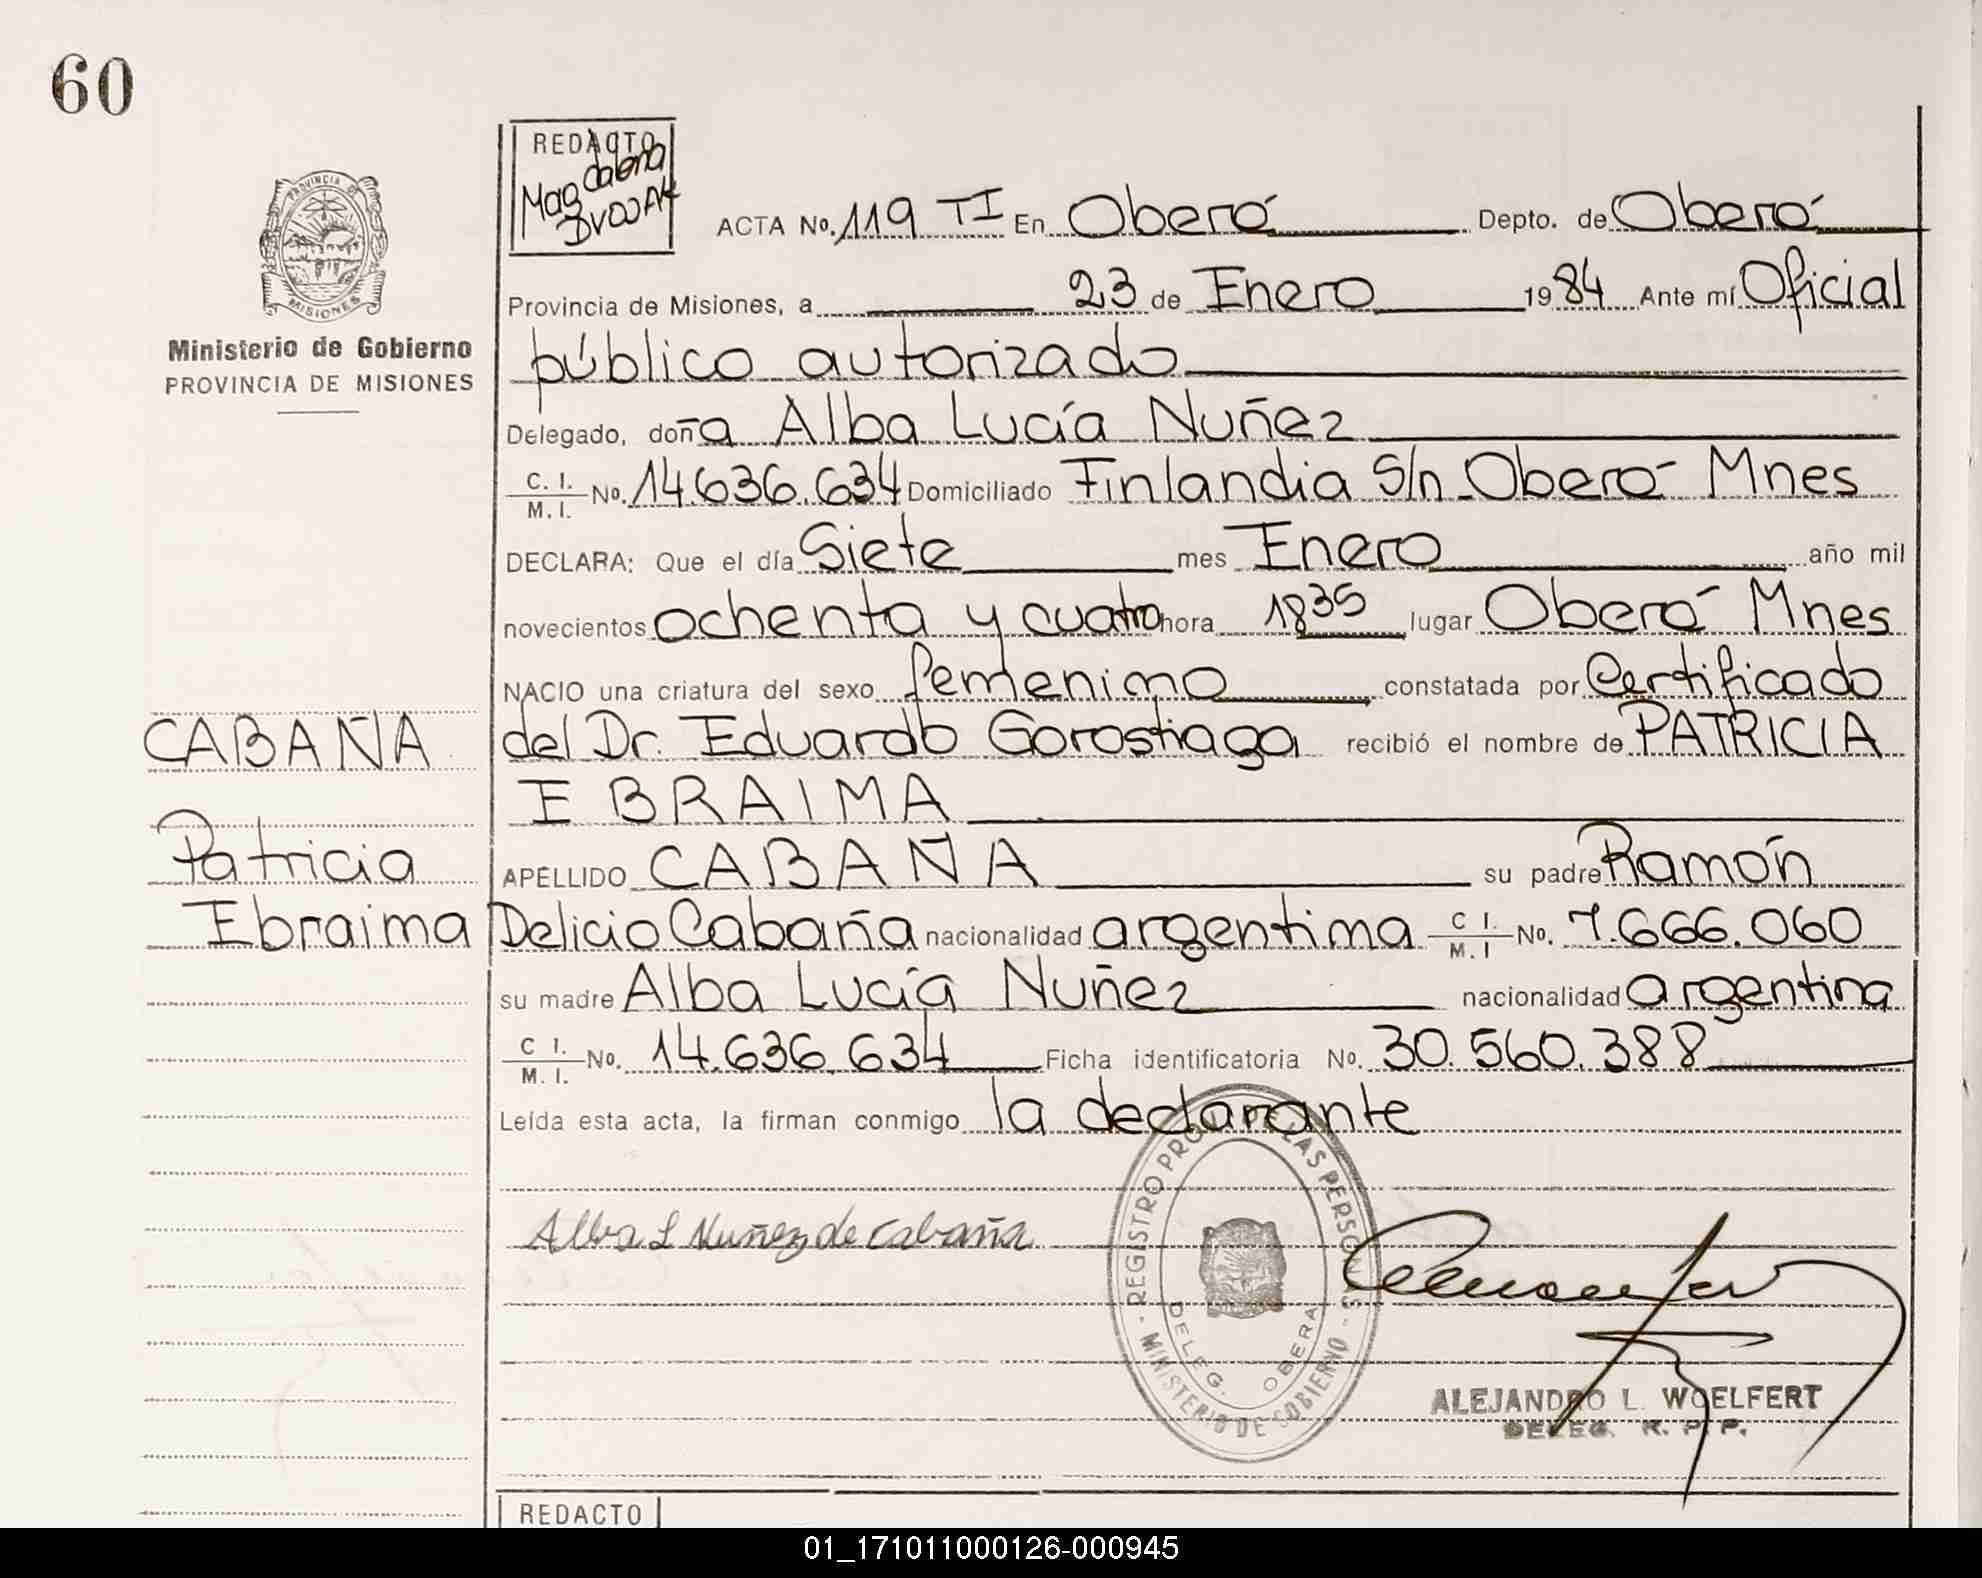 60
REDACTO
Magdalena
ACTA No. 119 TI En Oberá Depto. de Oberá
PROVINCIA DE
MISIONES
Provincia de Misiones, a 23 de Enero 1984 Ante mí Oficial
Ministerio de Gobierno
PROVINCIA DE MISIONES
público autorizado
Delegado, doña Alba Lucía Nuñez
C. I. / M. I. No. 14.636.634 Domiciliado Finlandia S/n - Oberá - Mnes
DECLARA: Que el día Siete mes Enero año mil
novecientos ochenta y cuatro hora 1835 lugar Oberá - Mnes
NACIO una criatura del sexo femenino constatada por Certificado
CABAÑA del Dr. Eduardo Gorostiaga recibió el nombre de PATRICIA
EBRAIMA
Patricia APELLIDO CABAÑA su padre Ramón
Ebraima Delicio Cabaña nacionalidad argentina C I. / M. I No. 7.666.060
su madre Alba Lucía Nuñez nacionalidad argentina
C I. / M. I. No. 14.636.634 Ficha identificatoria No. 30.560.388
Leída esta acta, la firman conmigo la declarante
Alba L Nuñez de Cabaña
REGISTRO PROV. DE LAS PERSONAS
- MINISTERIO DE GOBIERNO -
DELEG. OBERA
ALEJANDRO L. WOELFERT
DELEG. R. P. P.
REDACTO
01_171011000126-000945